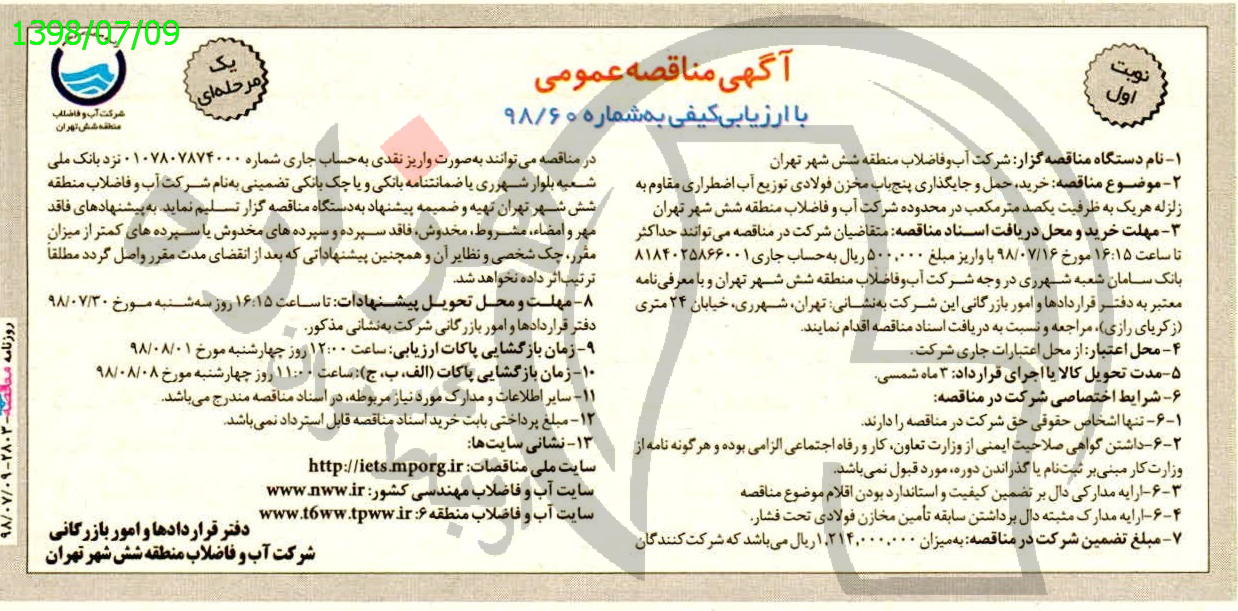 1398/07/09
نوبت
اول
آگهی مناقصه عمومی
با ارزیابی کیفی به‌شماره ۹۸/۶۰
یک
مرحله‌ای
شرکت آب و فاضلاب
منطقه شش تهران
۱- نام دستگاه مناقصه گزار: شرکت آب‌وفاضلاب منطقه شش شهر تهران
۲- موضوع مناقصه: خرید، حمل و جایگذاری پنج‌باب مخزن فولادی توزیع آب اضطراری مقاوم به
زلزله هریک به ظرفیت یکصد مترمکعب در محدوده شرکت آب و فاضلاب منطقه شش شهر تهران
۳- مهلت خرید و محل دریافت اسناد مناقصه: متقاضیان شرکت در مناقصه می‌توانند حداکثر
تا ساعت ۱۶:۱۵ مورخ ۹۸/۰۷/۱۶ با واریز مبلغ ۵۰۰,۰۰۰ ریال به‌حساب جاری ۸۱۸۴۰۲۵۸۶۶۰۰۱
بانک سامان شعبه شهرری در وجه شرکت آب‌وفاضلاب منطقه شش شهر تهران و با معرفی‌نامه
معتبر به دفتر قراردادها و امور بازرگانی این شرکت به‌نشانی: تهران، شهرری، خیابان ۲۴ متری
(زکریای رازی)، مراجعه و نسبت به دریافت اسناد مناقصه اقدام نمایند.
۴- محل اعتبار: از محل اعتبارات جاری شرکت.
۵- مدت تحویل کالا یا اجرای قرارداد: ۳ ماه شمسی.
۶- شرایط اختصاصی شرکت در مناقصه:
۶-۱- تنها اشخاص حقوقی حق شرکت در مناقصه را دارند.
۶-۲- داشتن گواهی صلاحیت ایمنی از وزارت تعاون، کار و رفاه اجتماعی الزامی بوده و هر گونه نامه از
وزارت کار مبنی بر ثبت‌نام یا گذراندن دوره، مورد قبول نمی‌باشد.
۶-۳- ارایه مدارکی دال بر تضمین کیفیت و استاندارد بودن اقلام موضوع مناقصه
۶-۴- ارایه مدارک مثبته دال برداشتن سابقه تأمین مخازن فولادی تحت فشار.
۷- مبلغ تضمین شرکت در مناقصه: به‌میزان ۱,۲۱۴,۰۰۰,۰۰۰ ریال می‌باشد که شرکت‌کنندگان
در مناقصه می‌توانند به‌صورت واریز نقدی به‌حساب جاری شماره ۰۱۰۷۸۰۷۸۷۴۰۰۰ نزد بانک ملی
شعبه بلوار شهرری یا ضمانتنامه بانکی و یا چک بانکی تضمینی به‌نام شرکت آب و فاضلاب منطقه
شش شهر تهران تهیه و ضمیمه پیشنهاد به‌دستگاه مناقصه گزار تسلیم نماید. به پیشنهادهای فاقد
مهر و امضاء، مشروط، مخدوش، فاقد سپرده و سپرده های مخدوش یا سپرده های کمتر از میزان
مقرر، چک شخصی و نظایر آن و همچنین پیشنهاداتی که بعد از انقضای مدت مقرر واصل گردد مطلقاً
ترتیب‌اثر داده نخواهد شد.
۸- مهلت و محل تحویل پیشنهادات: تا ساعت ۱۶:۱۵ روز سه‌شنبه مورخ ۹۸/۰۷/۳۰
دفتر قراردادها و امور بازرگانی شرکت به‌نشانی مذکور.
۹- زمان بازگشایی پاکات ارزیابی: ساعت ۱۲:۰۰ روز چهارشنبه مورخ ۹۸/۰۸/۰۱
۱۰- زمان بازگشایی پاکات (الف، ب، ج): ساعت ۱۱:۰۰ روز چهارشنبه مورخ ۹۸/۰۸/۰۸
۱۱- سایر اطلاعات و مدارک مورد نیاز مربوطه، در اسناد مناقصه مندرج می‌باشد.
۱۲- مبلغ پرداختی بابت خرید اسناد مناقصه قابل استرداد نمی‌باشد.
۱۳- نشانی سایت‌ها:
سایت ملی مناقصات: http://iets.mporg.ir
سایت آب و فاضلاب مهندسی کشور: www.nww.ir
سایت آب و فاضلاب منطقه ۶: www.t6ww.tpww.ir
دفتر قراردادها و امور بازرگانی
شرکت آب و فاضلاب منطقه شش شهر تهران
روزنامه مناقصه - ۲۸۰۳ - ۹۸/۰۷/۰۹